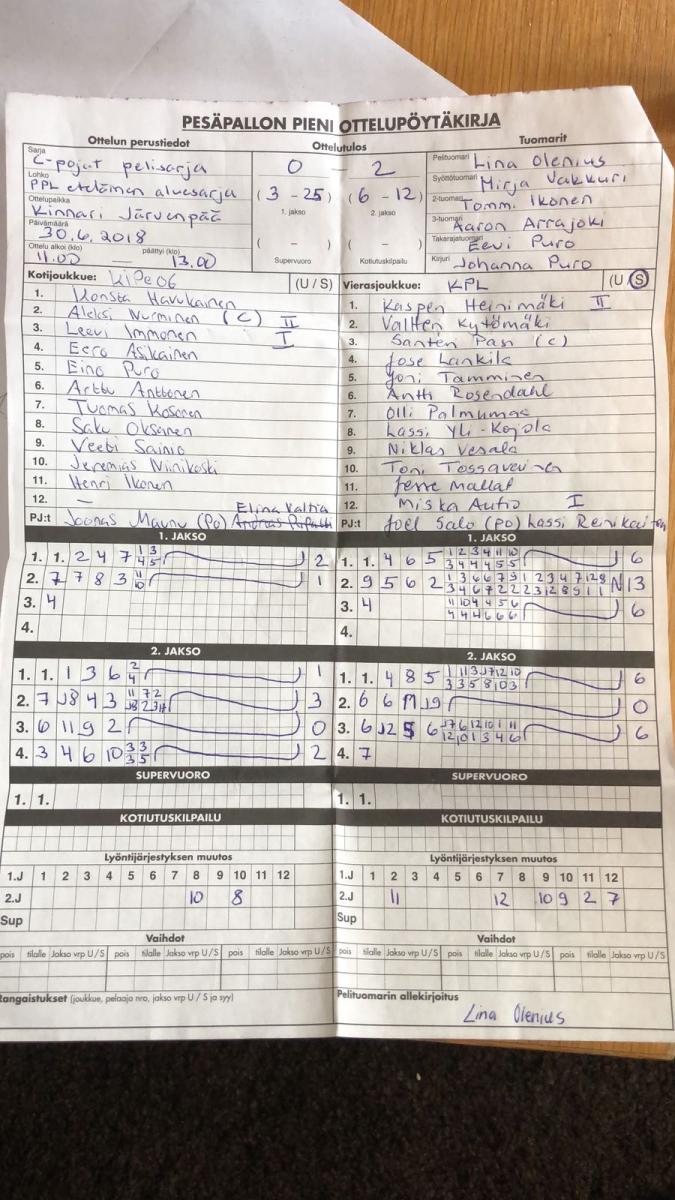 PESÄPALLON PIENI OTTELUPÖYTÄKIRJA
Ottelun perustiedot
Ottelutulos
Tuomarit
Sarja
C-pojat pelisarja
Lohko
PPL eteläinen aluesarja
Ottelupaikka
Kinnari Järvenpää
Päivämäärä
30.6.2018
Ottelu alkoi (klo) päättyi (klo)
11.00 — 13.00
0 — 2
(3 - 25) (6 - 12)
1. jakso 2. jakso
( - ) ( - )
Supervuoro Kotiutuskilpailu
Pelituomari Lina Olenius
Syöttötuomari Mirja Vakkuri
2-tuomari Tommi Ikonen
3-tuomari Aaron Arrajoki
Takarajatuomari Eevi Puro
Kirjuri Johanna Puro
Kotijoukkue: KiPe06 (U / S)
1. Konsta Havukainen
2. Aleksi Nurminen (C) II
3. Leevi Immonen I
4. Eero Asikainen
5. Eino Puro
6. Arttu Anttonen
7. Tuomas Kosonen
8. Saku Oksanen
9. Veeti Sainio
10. Jeremias Niinikoski
11. Henri Ikonen
12. —
Elina Valtia
PJ:t Joonas Maunu (PO)
Vierasjoukkue: KPL (U / S)
1. Kasperi Heinimäki II
2. Valtteri Kytömäki
3. Santeri Pasi (c)
4. Jose Lankila
5. Joni Tamminen
6. Antti Rosendahl
7. Olli Palmumaa
8. Lassi Yli-Kojola
9. Niklas Vesala
10. Toni Tossavainen
11. Jerre Mallat
12. Miska Autio I
PJ:t Joel Salo (PO) Lassi
1. JAKSO
1. 1. 2 4 7 1 3 2
4 5
2. 7 7 8 3 11 1
10
3. 4
4.
1. JAKSO
1. 1. 4 6 5 1 2 3 4 11 10 6
3 4 4 4 5 5
2. 9 5 6 2 1 3 6 6 7 9 1 2 3 4 7 12 8 N 13
3 4 6 7 2 2 2 2 3 12 8 9 1 1
3. 4 11 10 4 4 5 6 6
4 4 4 6 6 6
4.
2. JAKSO
1. 1. 1 3 6 2 1
4
2. 7 J8 4 3 11 7 2 3
3. 6 11 9 2 0
4. 3 4 6 10 3 3 2
3 5
2. JAKSO
1. 1. 4 8 5 1 11 3 J7 12 10 6
3 3 5 8 10 3
2. 6 6 11 J9 0
3. 6 J2 5 6 J7 6 12 10 1 11 6
12 10 1 3 4 6
4. 7
SUPERVUORO
1. 1.
SUPERVUORO
1. 1.
KOTIUTUSKILPAILU
KOTIUTUSKILPAILU
Lyöntijärjestyksen muutos
1.J 1 2 3 4 5 6 7 8 9 10 11 12
2.J 10 8
Sup
Lyöntijärjestyksen muutos
1.J 1 2 3 4 5 6 7 8 9 10 11 12
2.J 11 12 10 9 2 7
Sup
Vaihdot
pois tilalle Jakso vrp U / S pois tilalle Jakso vrp U / S pois tilalle Jakso vrp U / S
Vaihdot
pois tilalle Jakso vrp U / S pois tilalle Jakso vrp U / S pois tilalle Jakso vrp U / S
tangaistukset (joukkue, pelaaja nro, jakso vrp U / S ja syy)
Pelituomarin allekirjoitus
Lina Olenius